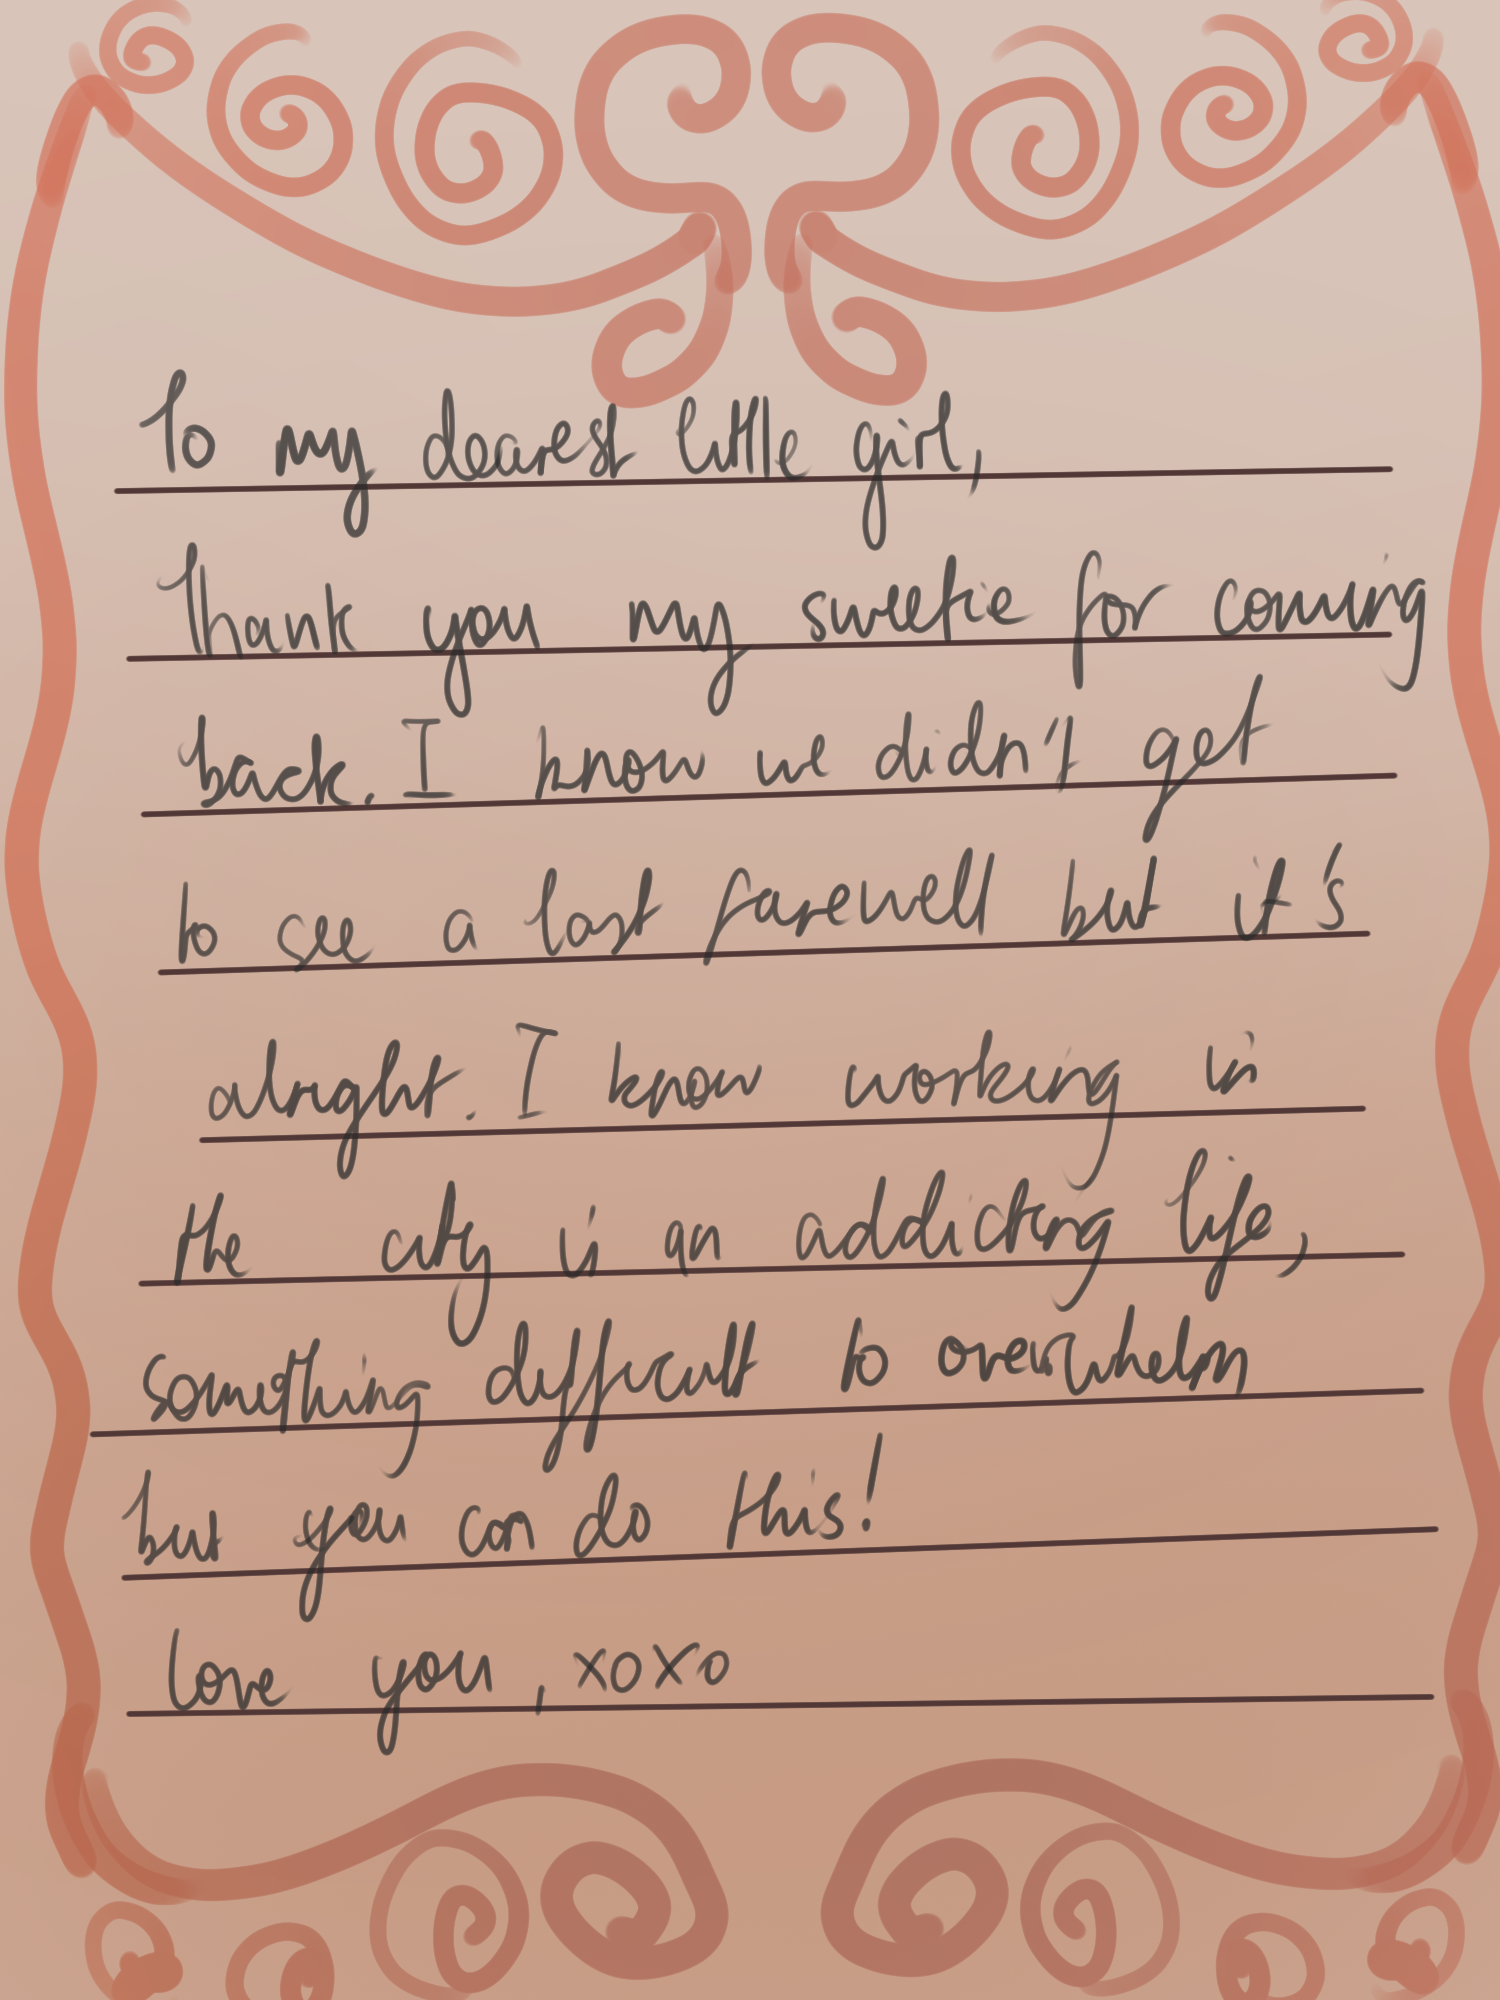 To my dearest little girl,
Thank you my sweetie for coming
back. I know we didn't get
to see a last farewell but it's
alright. I know working in
the city is an addicting life,
something difficult to overwhelm
but you can do this!
love you, xoxo